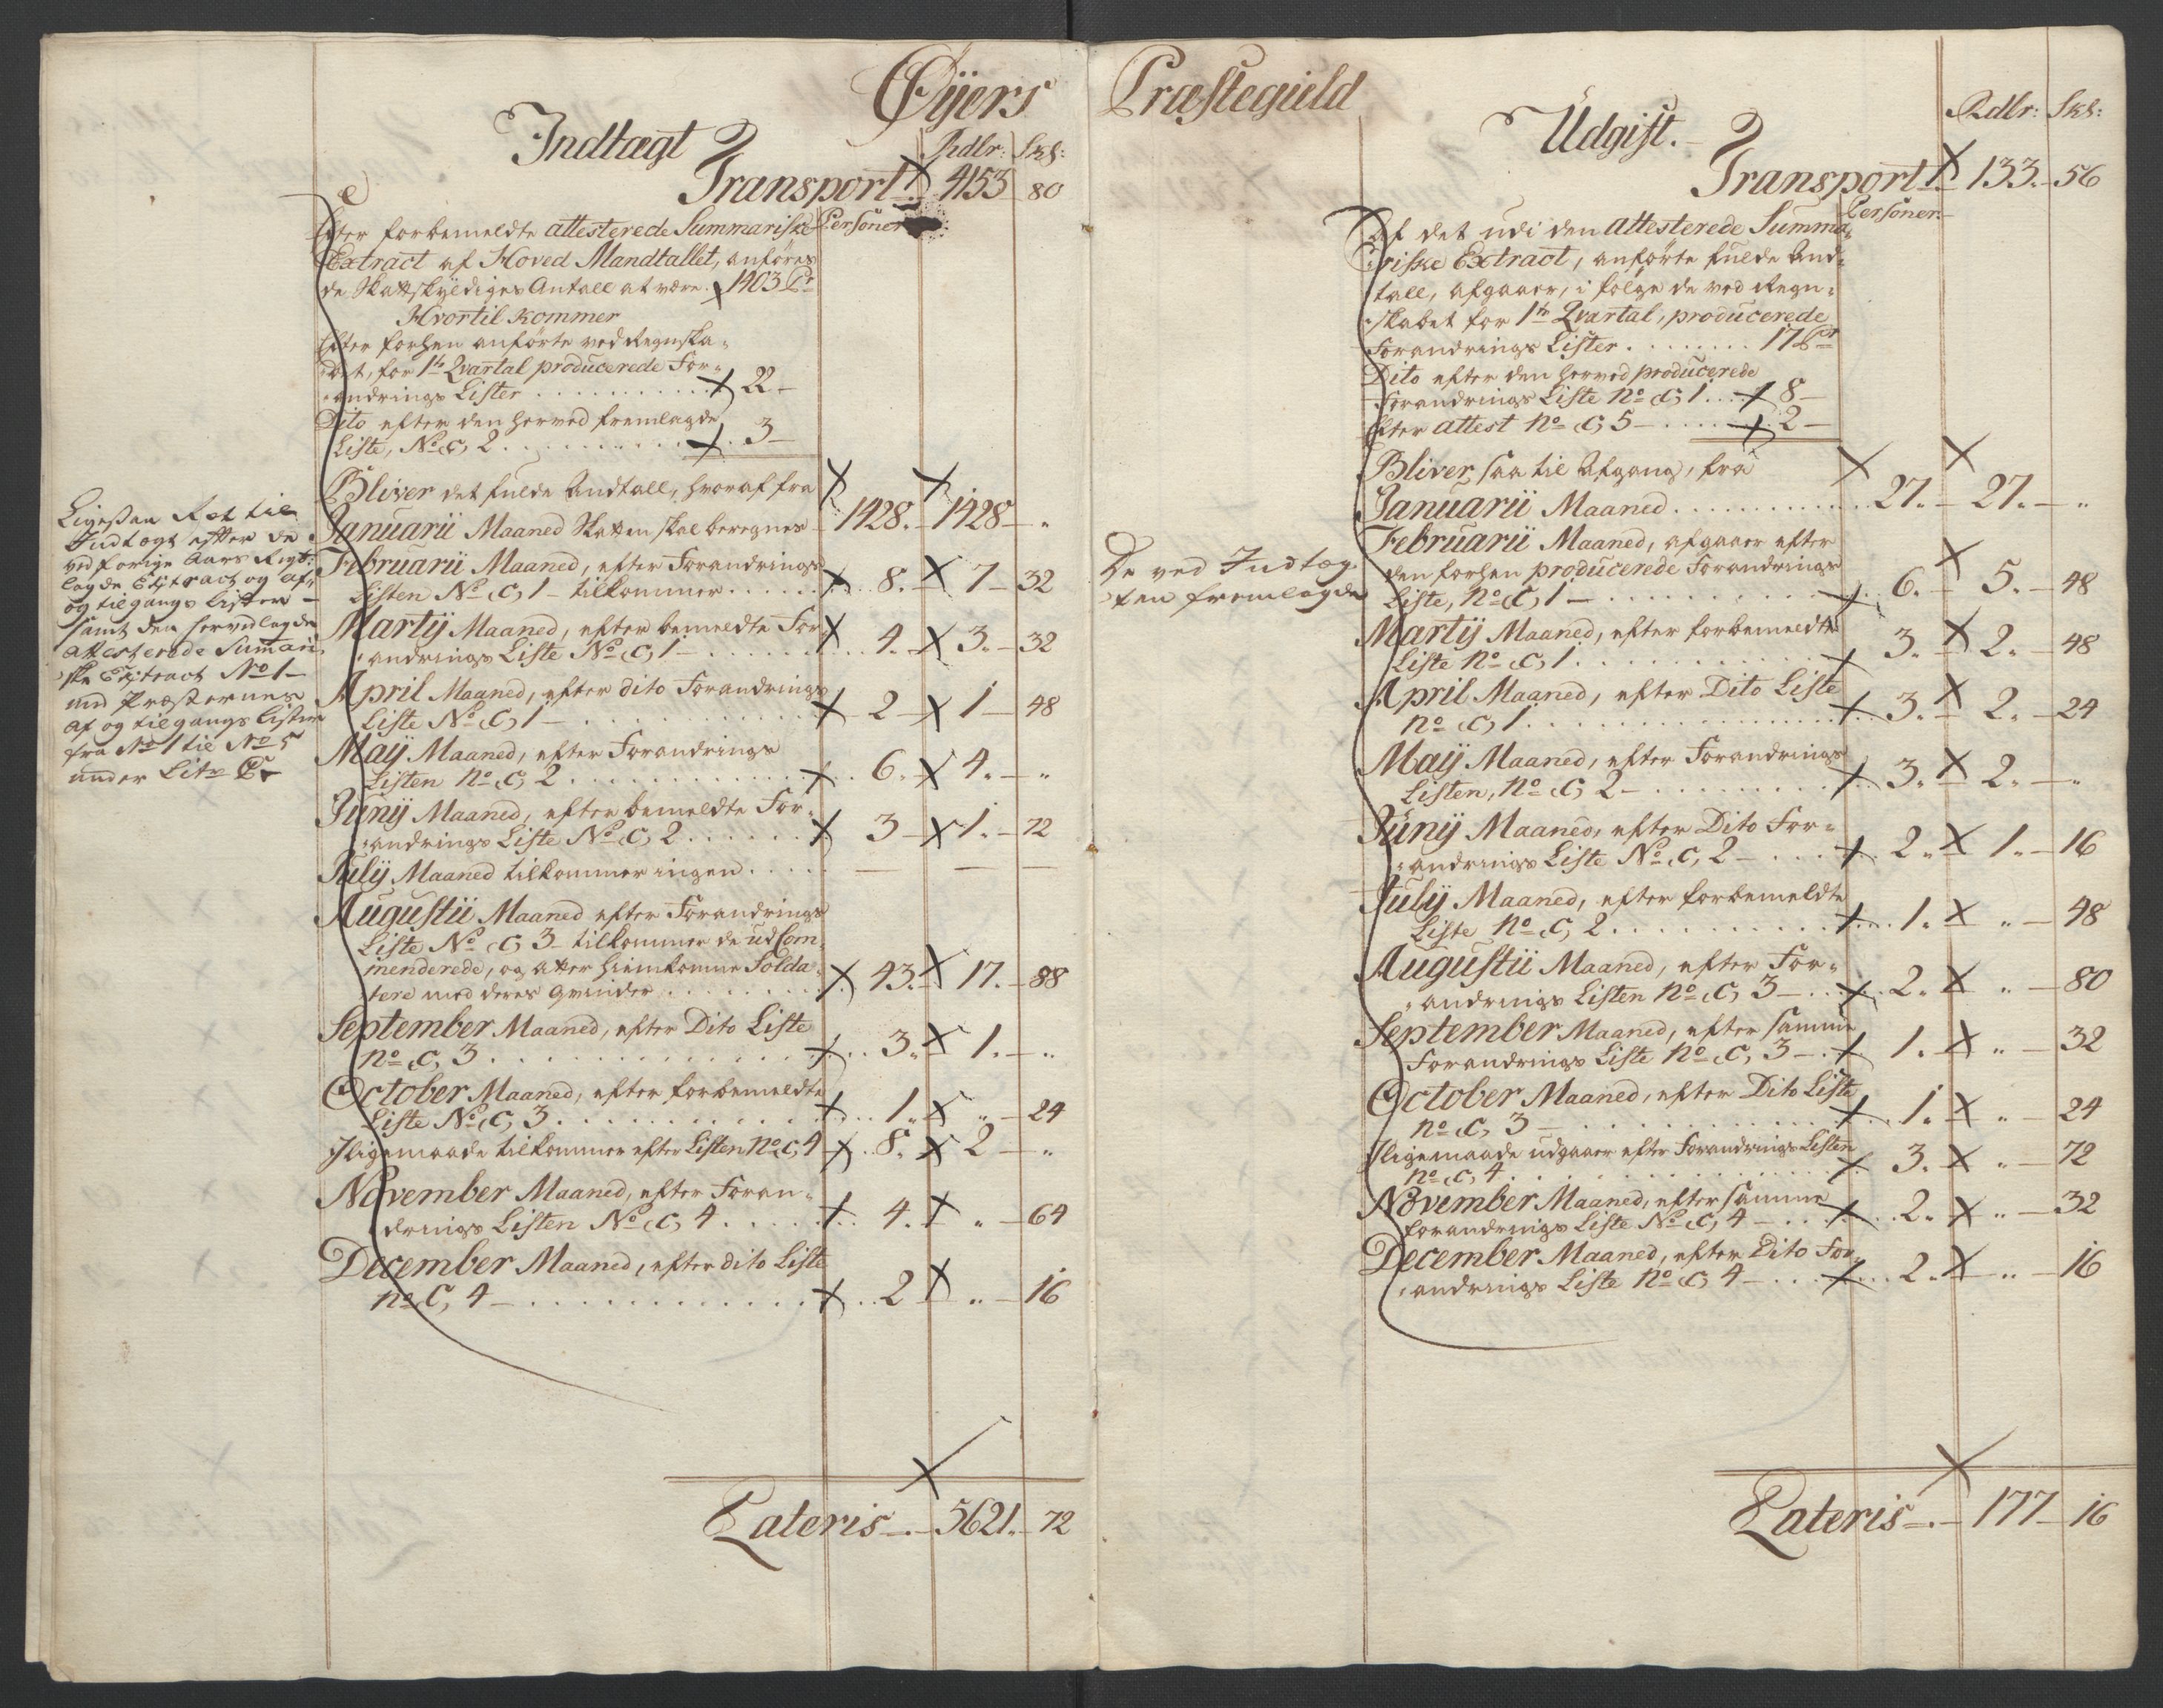 Øijers
Indtægt
Rdlr: Skl:
Transport 4153 80
Efter forbemeldte attesterede Summariske Personer
Extract af Hoved Mandtallet, anføres
de Skattskyldiges Antall at være. 1403 Pr
Hvortil kommer
Efter forhen anførte ved Regnska-
bet, for 1te Qvartal producerede For-
andrings Lister 22
Dito efter den herved fremlagde
Liste, No C, 2 3
Bliver det fulde Andtall, hvoraf fra
Januarii Maaned Skatten skal beregnes 1428. 1428 "
Februarii Maaned, efter Forandrings
Listen No C, 1 tilkommer 8. 7 32
Martij Maaned, efter bemeldte For-
andrings Liste No C, 1 4. 3. 32
April Maaned, efter dito Forandrings
Liste No C, 1 2 1 48
Maij Maaned, efter Forandrings
Listen no C, 2 6. 4. "
Junij Maaned, efter bemeldte For-
andrings Liste No C, 2 3 1. 72
Julij Maaned tilkommer ingen — — —
Augustii Maaned efter Forandrings
Liste No C, 3 tilkommer de ud Com-
menderede, og atter hiemkomne Solda-
tere med deres Qvinder 43. 17. 88
September Maaned, efter Dito Liste
no C, 3 3. 1. "
October Maaned, efter forbemeldte
Liste No C, 3 1. " 24
Iligemaade tilkommer efter Listen No C, 4 8. 2 "
November Maaned, efter Foran-
drings Listen No C, 4 4. " 64
December Maaned, efter dito Liste
no C, 4 2 " 16
Lateris 5621. 72
Ligesaa Ret til
Indtægt efter de
ved forige Aars Regt:
lagde Extract og af-
og tilgangs lister
samt den hervedlagde
attesterede Summari-
ske Extract No 1
med Præsternes
af og tilgangs lister
fra No 1 til No 5
under Litr C
Præstegield
Udgift.
Rdlr: Skl:
Transport 133. 56
Af det udi den attesterede Summa- Personer
riske Extract, anførte fulde And-
tall, afgaaer, i følge de ved Regn-
skabet for 1te Qvartal, producerede
Forandrings Lister 17 Pr
Dito efter den herved producerede
Forandrings Liste no C, 1 8
Efter attest no C, 5 2
Bliver saa til Afgang, fra
Januarii Maaned 27. 27. "
Februarii Maaned, afgaaer efter
den forhen producerede Forandrings
Liste, no C, 1 6. 5. 48
Martij Maaned, efter forbemeldte
Liste no C, 1 3. 2. 48
April Maaned, efter Dito Liste
no C, 1 3. 2. 24
Maij Maaned, efter Forandrings
Listen, no C, 2 3. 2. "
Junij Maaned, efter Dito For-
andrings Liste No C, 2 2. 1. 16
Julij Maaned, efter forbemeldte
Liste no C, 2 1. " 48
Augustii Maaned, efter For-
andrings Listen no C, 3 2. " 80
September Maaned, efter samme
Forandrings Liste no C, 3 1. " 32
October Maaned, efter Dito Liste
no C, 3 1. " 24
Iligemaade udgaaer efter Forandrings Listen
no C, 4 3. " 72
November Maaned, efter samme
forandrings Liste No C, 4 2. " 32
December Maaned, efter Dito For-
andrings Liste no C, 4 2. " 16
Lateris 177 16
De ved Indtæg-
ten fremlagde